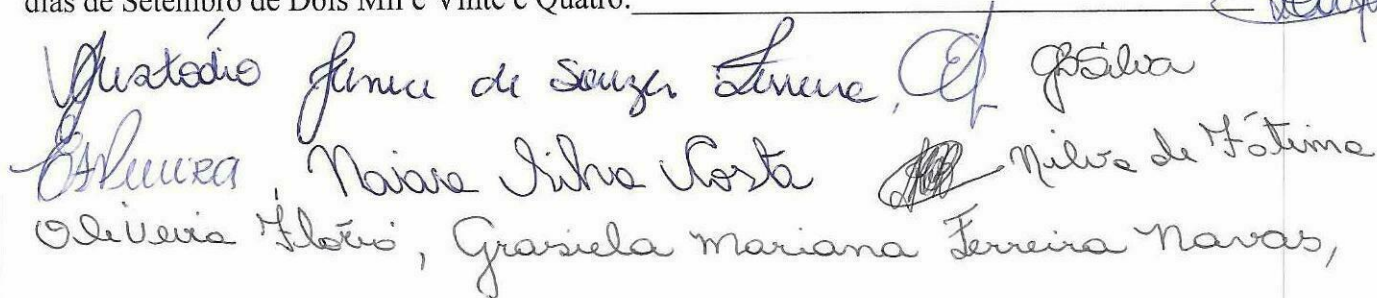 dias de Setembro de Dois Mil e Vinte e Quatro.
Custódio Junia de Souza GSSilva
Naiara Silva Costa Nilva de Fátima
Oliveira Flório, Grasiela Mariana Ferreira Navas,